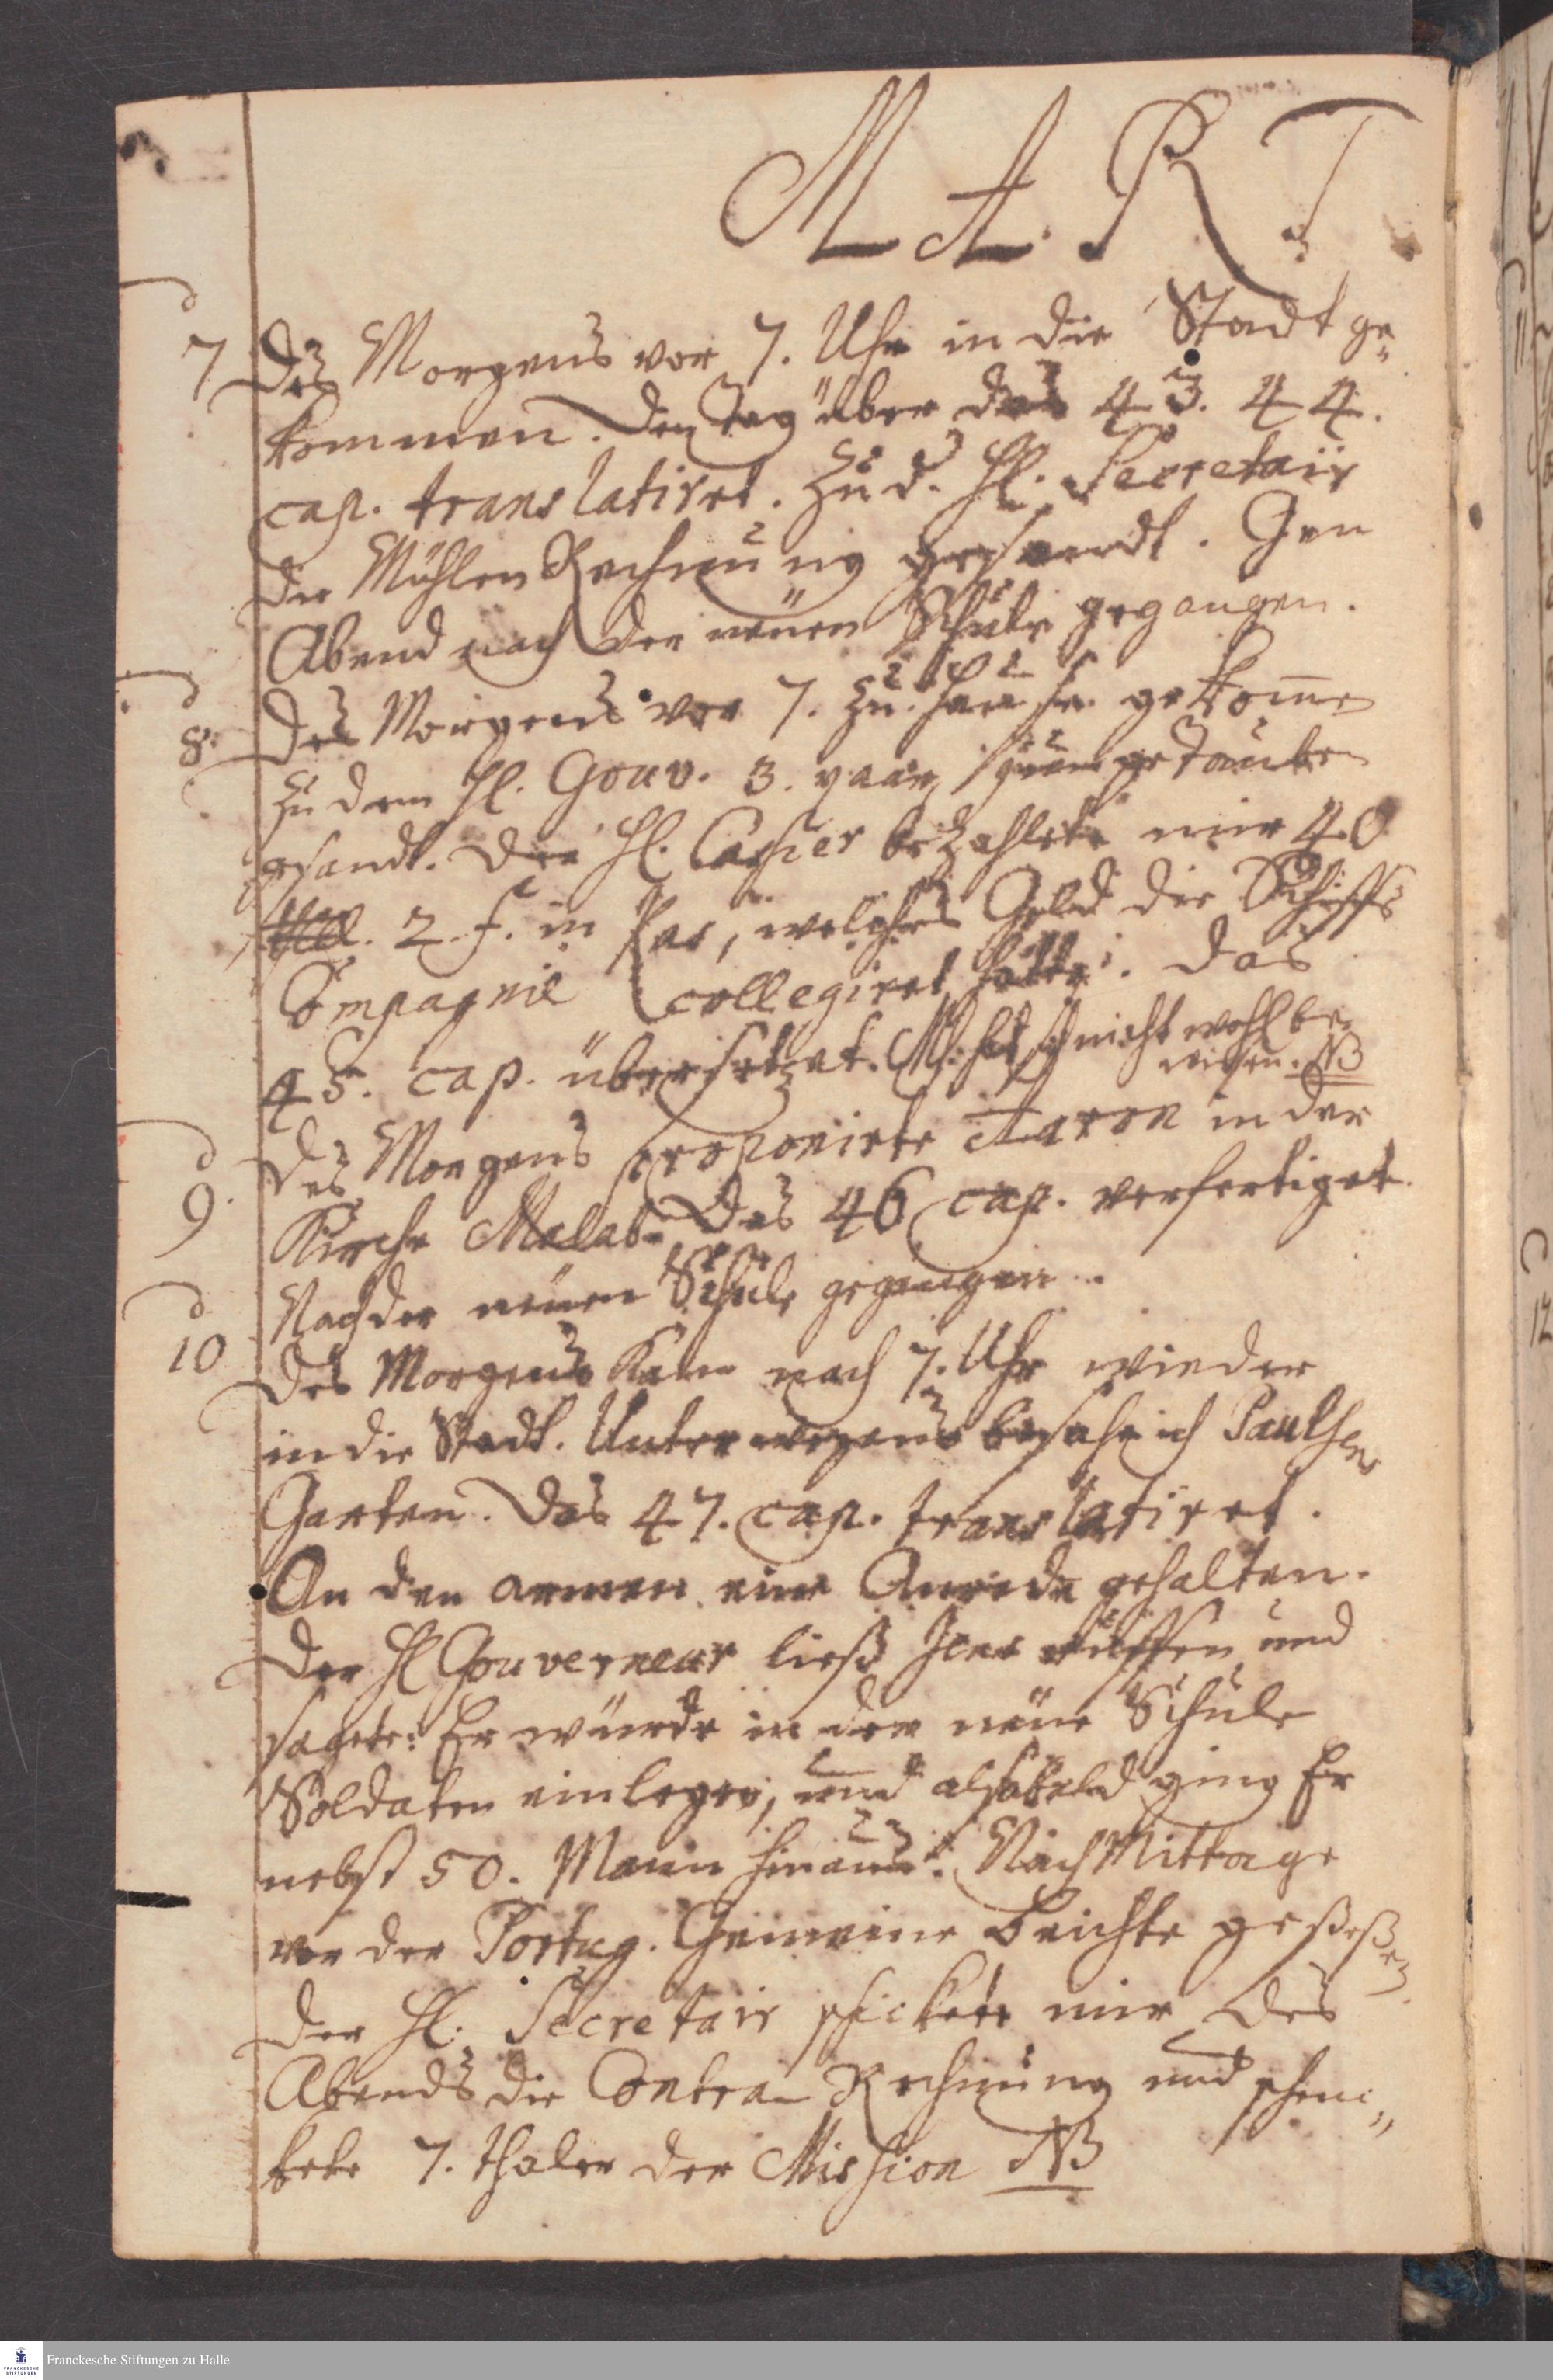 MART
7. Des Morgens vor 7. Uhr in die Stadt ge„
kommen. Den Tag über das 43. 44.
cap. translatiret. Zu d. Hl. Secretair
die Mühlen Rechnung gesandt. Gen
Abend nach der neuen Schule gegangen.
8. Des Morgens vor 7. zu Hause gekom̄en
zu dem Hl. Gouv. 3. paar junge Tauben
gesandt. Der Hl. Cassier bezahlete mir 40
2 f. in Kas, welches Geld die Schiffs
Compagnie collegiret hatte. Das
45. cap. übersetzet. M. hat sich nicht wohl be„
wiesen. NB
9. Des Morgens proponirte Aaron in der
Kirche Malab. Das 46 cap. verfertiget.
Nach der neuen Schule gegangen.
10 Des Morgens kam nach 7. Uhr wieder
in die Stadt. Unterwegens besahe ich Paulsens
Garten. Das 47. cap. translatiret.
An den armen eine Anrede gehalten.
Der Hl Gouverneur ließ Jens ruffen und
sagete: Er würde in der neue Schule
Soldaten einlegen, und alsobald ging Er
nebst 50. Mann hinaus. Nach Mittage
von der Portug. Gemeine Beichte geseßen.
Der Hl. Secretair schickete mir des
Abends die Contra-Rechnung und schen„
kete 7. thaler der Mission NB
FRANCKESCHE STIFTUNGEN
Franckesche Stiftungen zu Halle